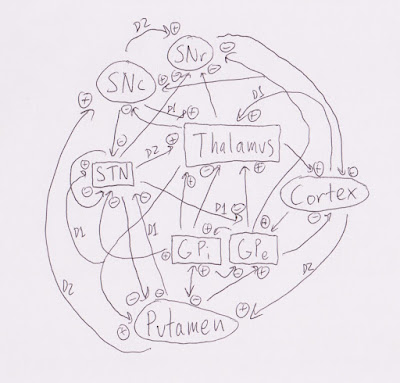 D2
SNr
SNc
D1
D1
Thalamus
D2
STN
Cortex
D1
GPi
GPe
D1
D1
D2
D2
Putamen